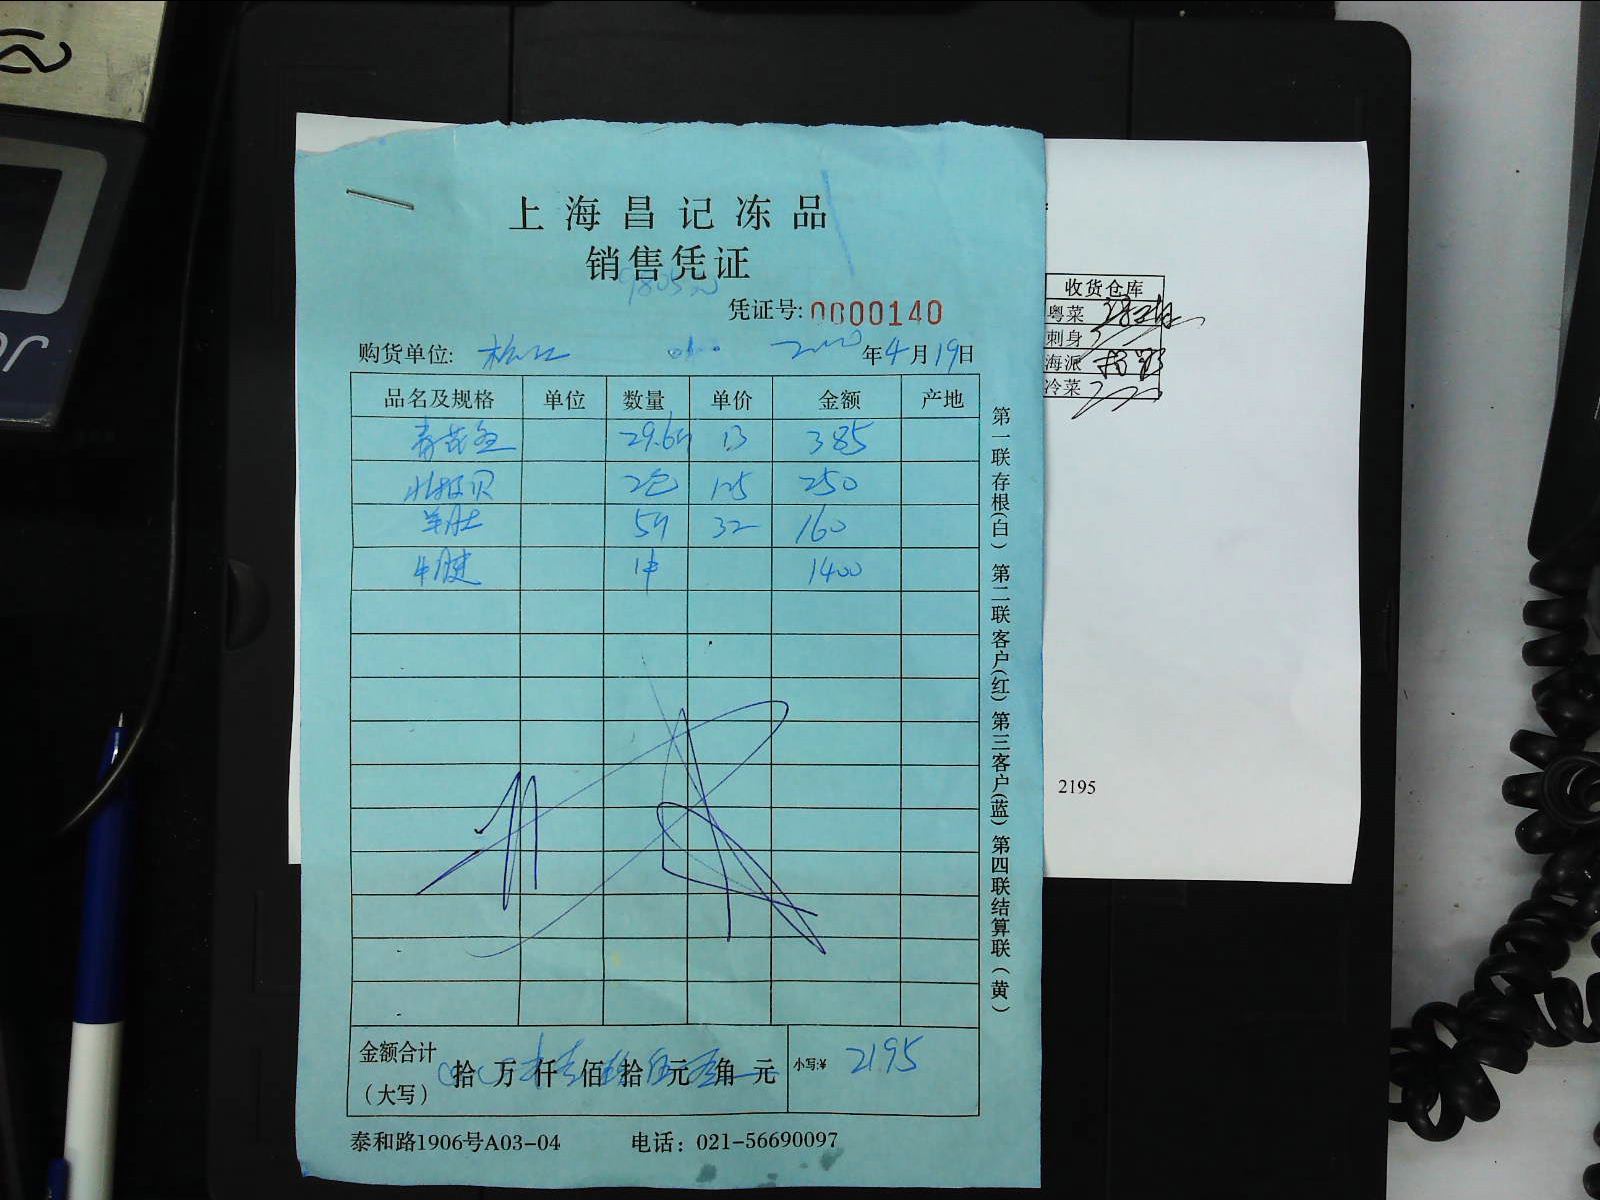 上海昌记冻品
销售凭证
凭证号: 0000140
购货单位: 松江 年4月19日
品名及规格 单位 数量 单价 金额 产地
29.6斤 13 385
北极贝 2包 125 250
羊肚 5斤 32 160
牛腱 1件 1400
金额合计
(大写)
拾 万 仟 佰 拾 元 角 元 小写:¥ 2195
泰和路1906号A03-04 电话: 021-56690097
第一联存根(白) 第二联客户(红) 第三客户(蓝) 第四联结算联(黄)
收货仓库
粤菜
刺身
海派
冷菜
2195